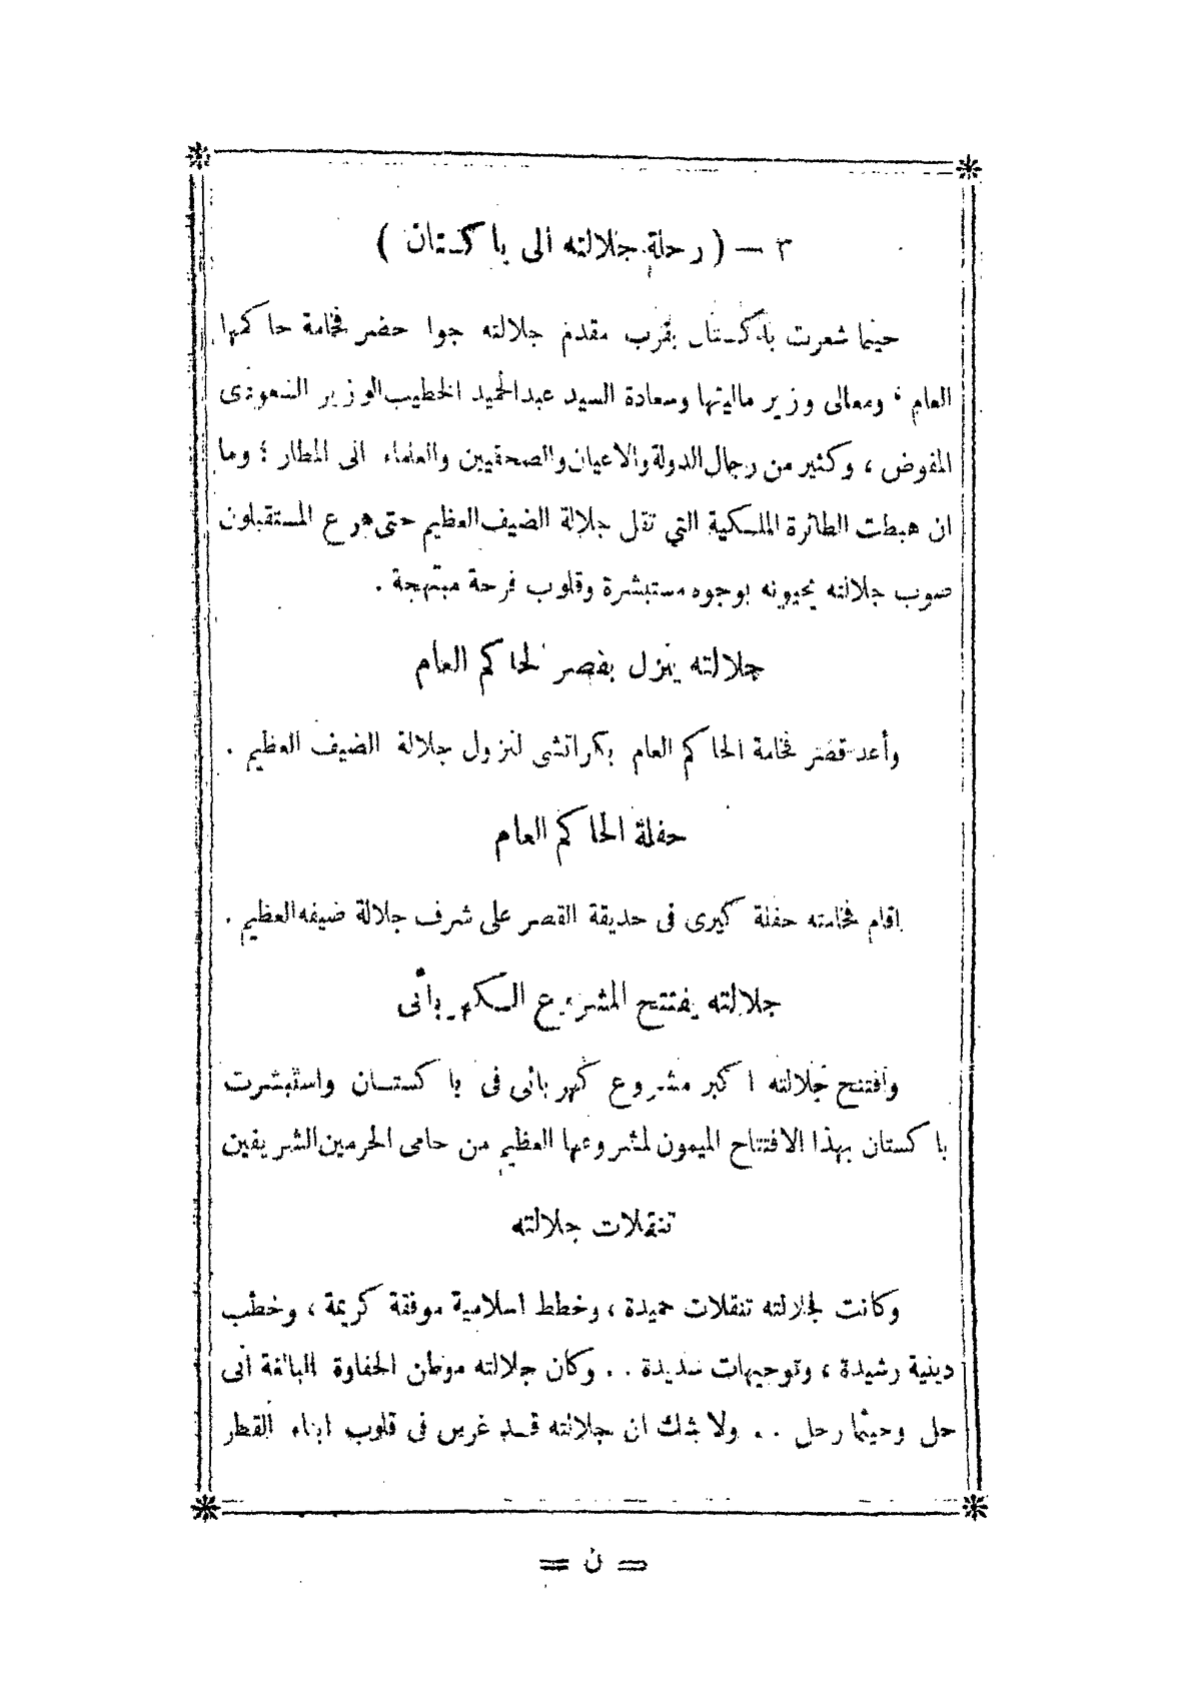 ٣ — ( رحلة جلالته الى باكستان )
حينما شعرت باكستان بقرب مقدم جلالته جوا حضر فخامة حاكمها
العام ، ومعالى وزير ماليتها وسعادة السيد عبدالحميد الخطيب الوزير السعودى
المفوض ، وكثير من رجال الدولة والاعيان والصحفيين والعلماء الى المطار ؛ وما
ان هبطت الطائرة الملكية التي تقل جلالة الضيف العظيم حتى هرع المستقبلون
صوب جلالته يحيونه بوجوه مستبشرة وقلوب فرحة مبتهجة .
جلالته ينزل بقصر الحاكم العام
وأعد قصر فخامة الحاكم العام بكراتشى لنزول جلالة الضيف العظيم .
حفلة الحاكم العام
اقام فخامته حفلة كبرى فى حديقة القصر على شرف جلالة ضيفه العظيم .
جلالته يفتتح المشروع الكهربائى
وافتتح جلالته اكبر مشروع كهربائى فى باكستان واستبشرت
باكستان بهذا الافتتاح الميمون لمشروعها العظيم من حامى الحرمين الشريفين
تنقلات جلالته
وكانت لجلالته تنقلات حميدة ، وخطط اسلامية موفقة كريمة ، وخطب
دينية رشيدة ، وتوجيهات سديدة . . وكان جلالته موطن الحفاوة البالغة أنى
حل وحيثما رحل . . ولا شك ان جلالته قد غرس فى قلوب ابناء القطر
= ن =